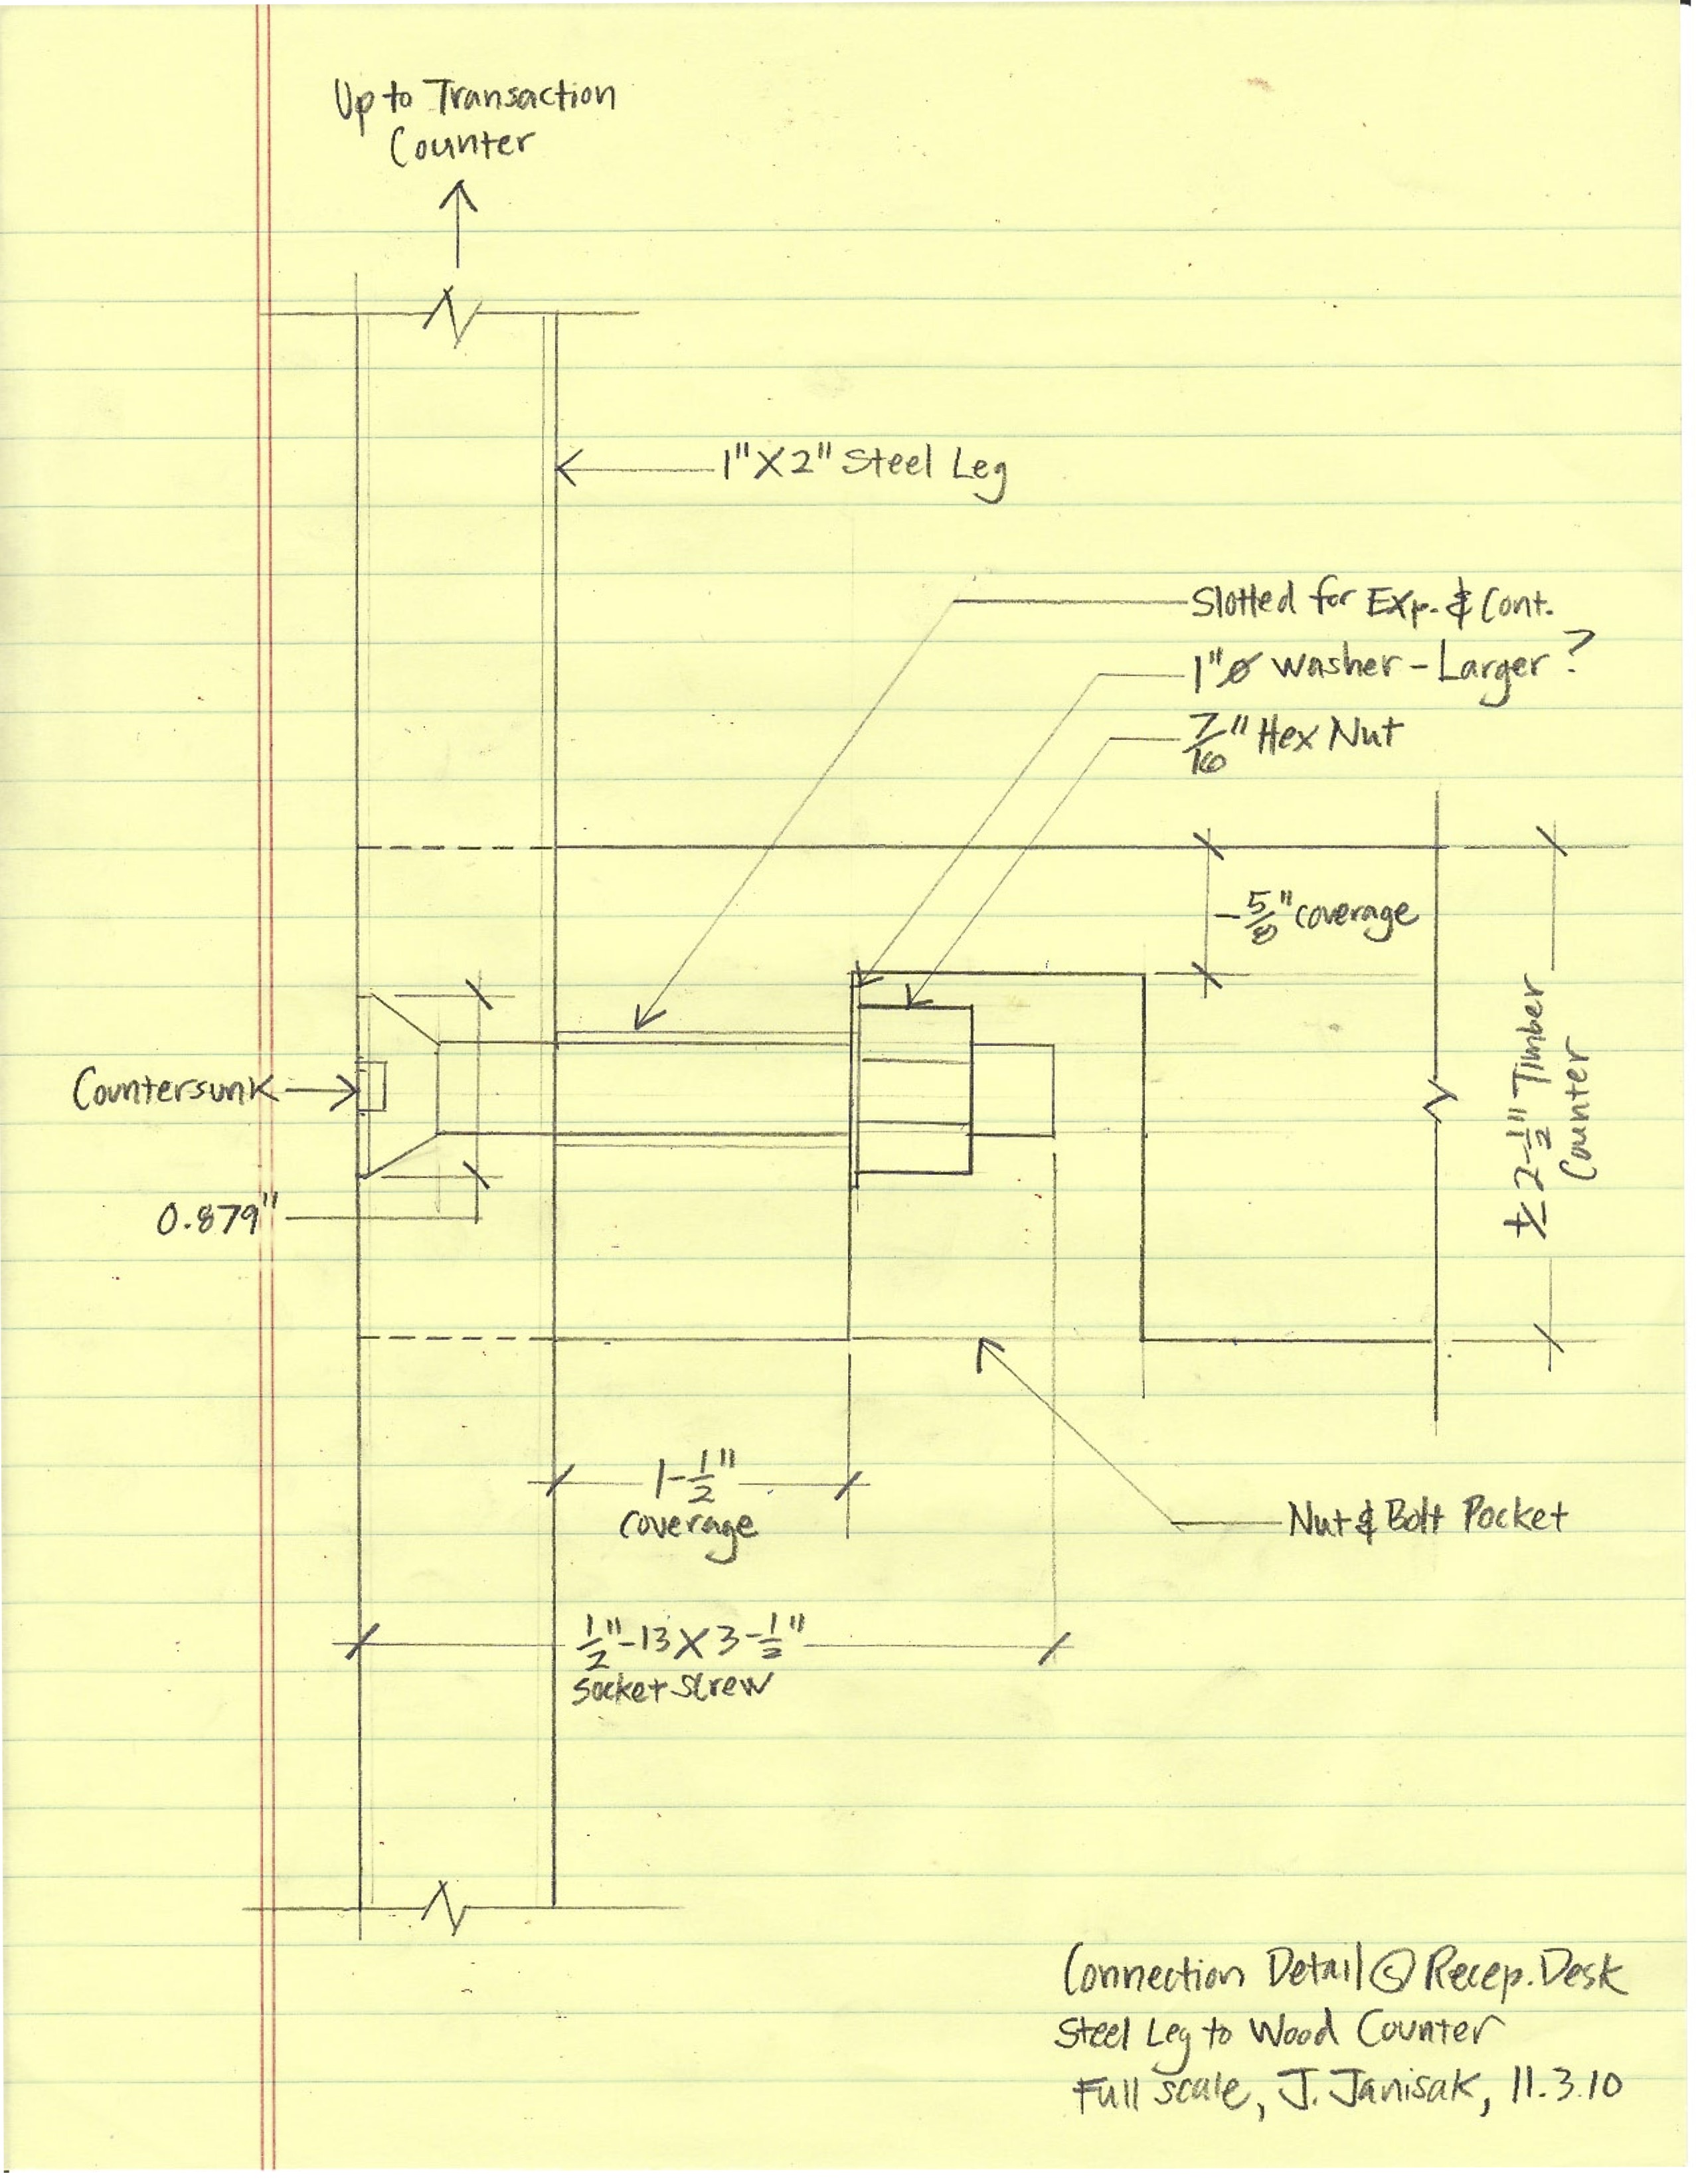 Up to Transaction
Counter
1" X 2" Steel Leg
Slotted for Exp. & Cont.
1"ø washer - Larger?
7/16" Hex Nut
-5/8" coverage
± 2-1/2" Timber
Counter
Countersunk
0.879"
1-1/2"
coverage
Nut & Bolt Pocket
1/2"-13 X 3-1/2"
socket screw
Connection Detail @ Recep. Desk
Steel Leg to Wood Counter
Full scale, J. Janisak, 11.3.10